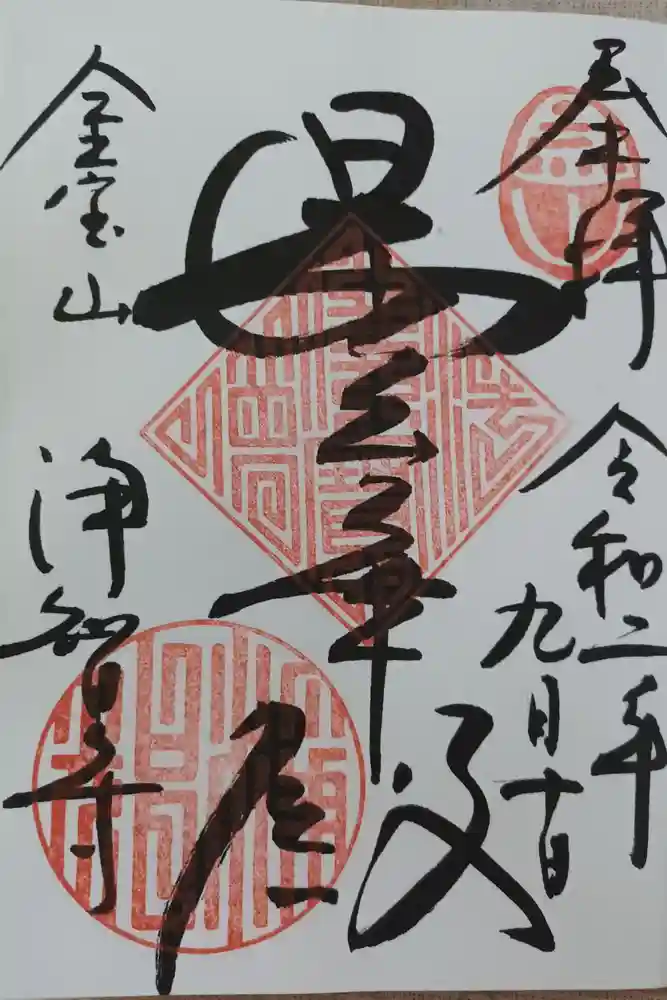 奉拝
令和二年
九月十日
曇華殿
金宝山
浄智寺